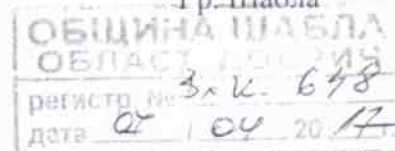 гр. Шабла
ОБЩИНА ШАБЛА
ОБЛАСТ ДОБРИЧ
регистр. № 3λК- 648
дата 07 / 04 20 17 г.